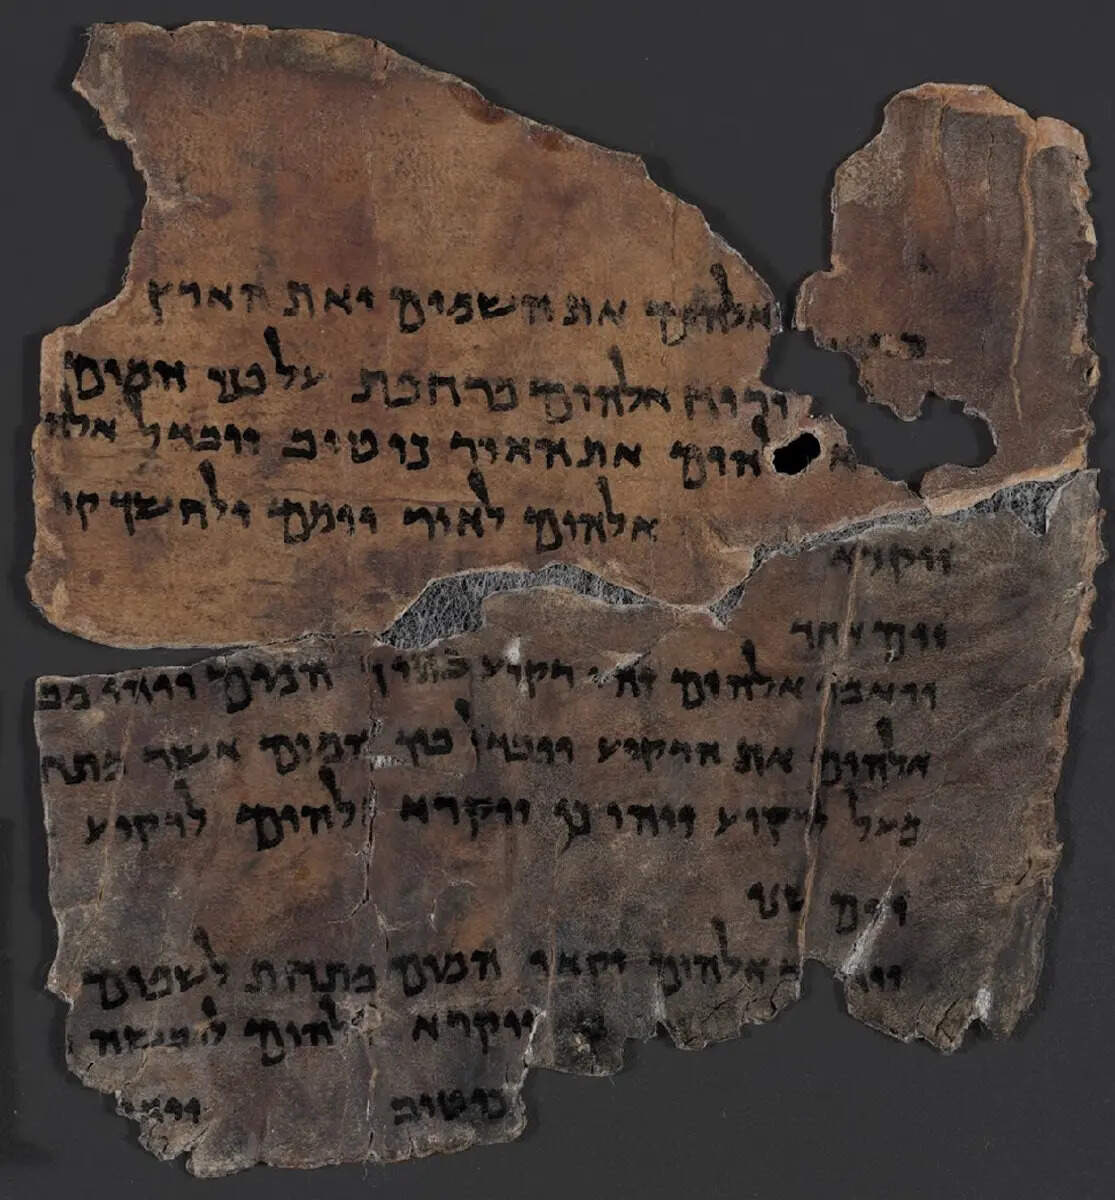 אלהים את השמים ואת הארץ
ורוח אלהים מרחפת על פני המים
א להים את האור כי טוב ויבדל אלה
אלהים לאור יומם ולחשך קר
ויקרא
יום אחד
ויאמר אלהים יהי רקיע בתוך המים ויהי מב
אלהים את הרקיע ויבדל בין המים אשר מתח
מעל לרקיע ויהי כן ויקרא אלהים לרקיע
יום שני
ויאמר אלהים יקוו המים מתחת לשמים
ויקרא אלהים למקוה
כי טוב ויאמ